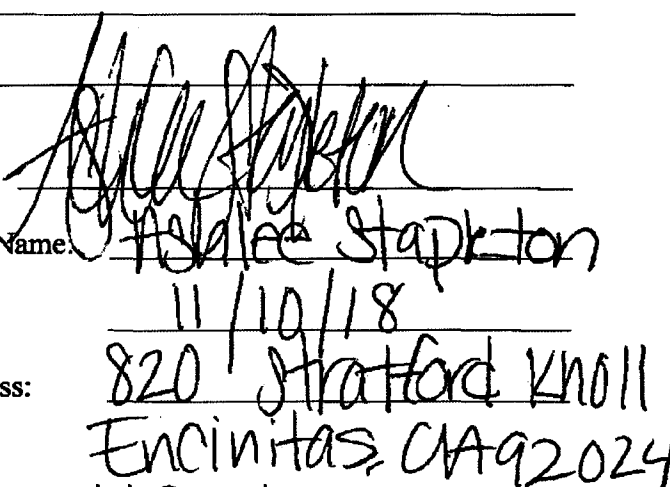 Name: Ashlee Stapleton
11/10/18
ss: 820 Stratford Knoll
Encinitas, CA 92024